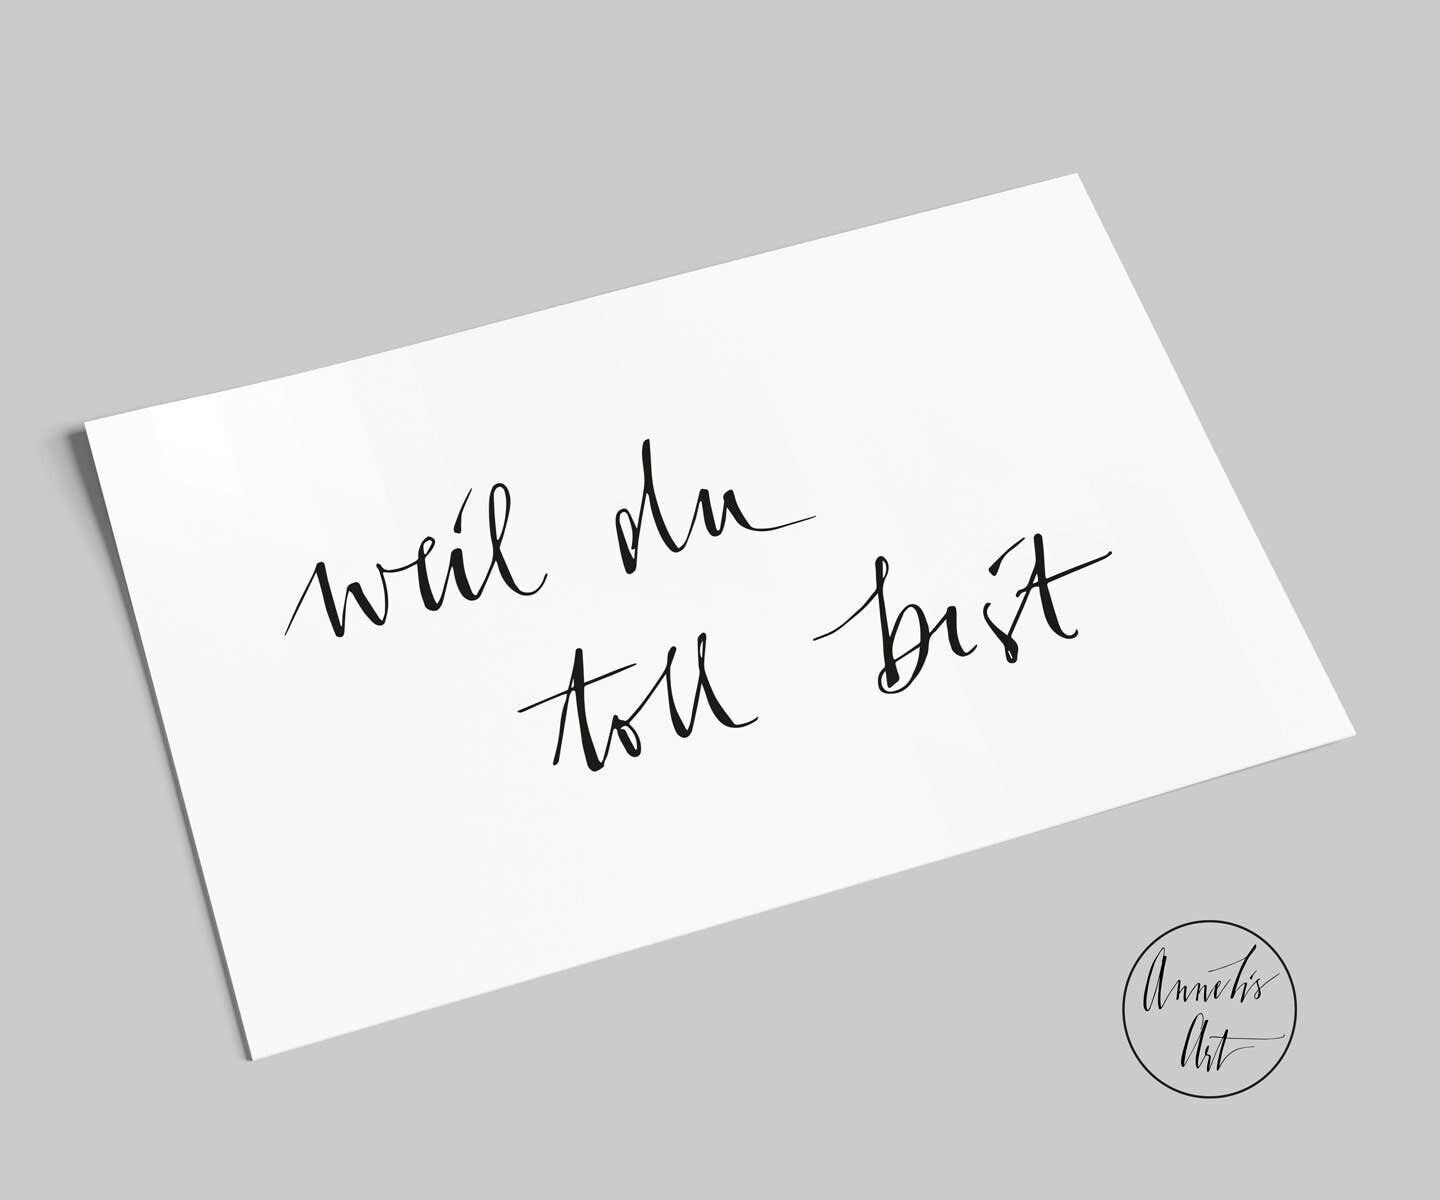 weil du
toll bist
Anneti's
Art